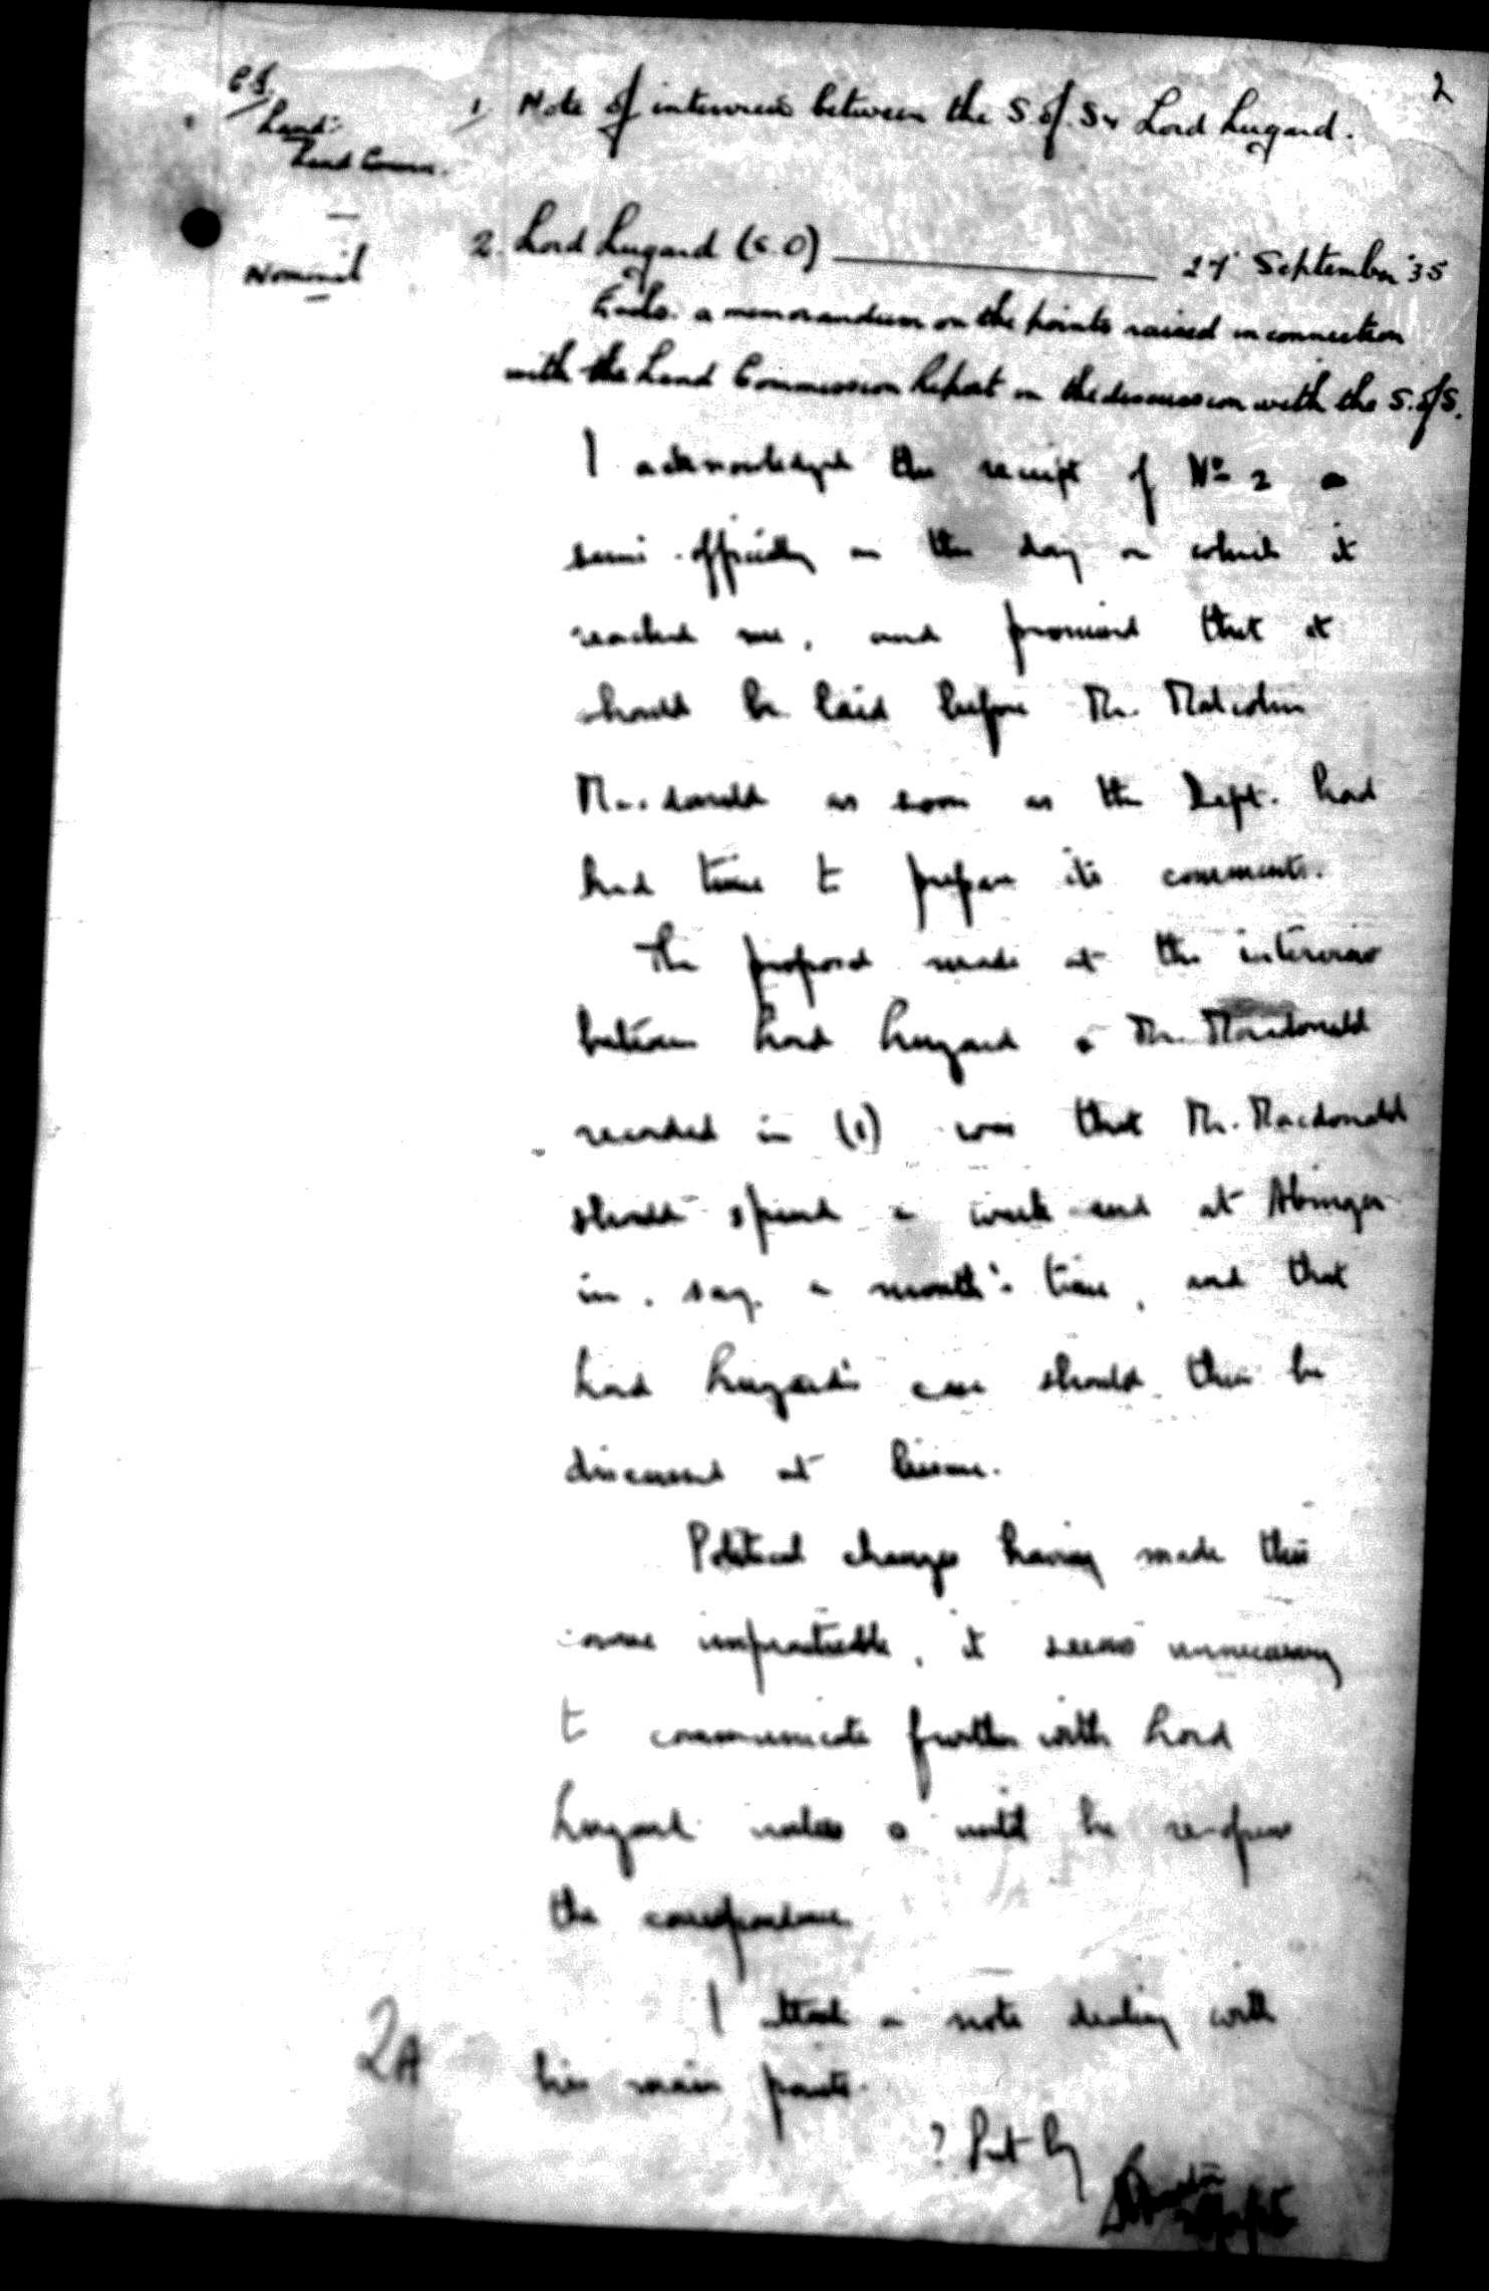 2
Land:
Land Comm.
1. Note of interview between the S. of S. & Lord Lugard.
Nominal
2. Lord Lugard (S.O) 27 September '35
Encls. a memorandum on the points raised in connection
with the Land Commission Report in the discussion with the S. of S.
I acknowledged the receipt of No 2
semi-officially on the day on which it
reached me, and promised that it
should be laid before Mr. Malcolm
Macdonald as soon as the Dept. had
had time to prepare its comments.
The proposal made at the interview
between Lord Lugard & Mr. Macdonald
recorded in (1) was that Mr. Macdonald
should spend a week-end at Abinger
in, say, a month's time, and that
Lord Lugard's case should then be
discussed at leisure.
Political changes having made this
course impracticable, it seems unnecessary
to communicate further with Lord
Lugard unless & until he re-opens
the correspondence.
I attach a note dealing with
2A
his main points.
? Put by